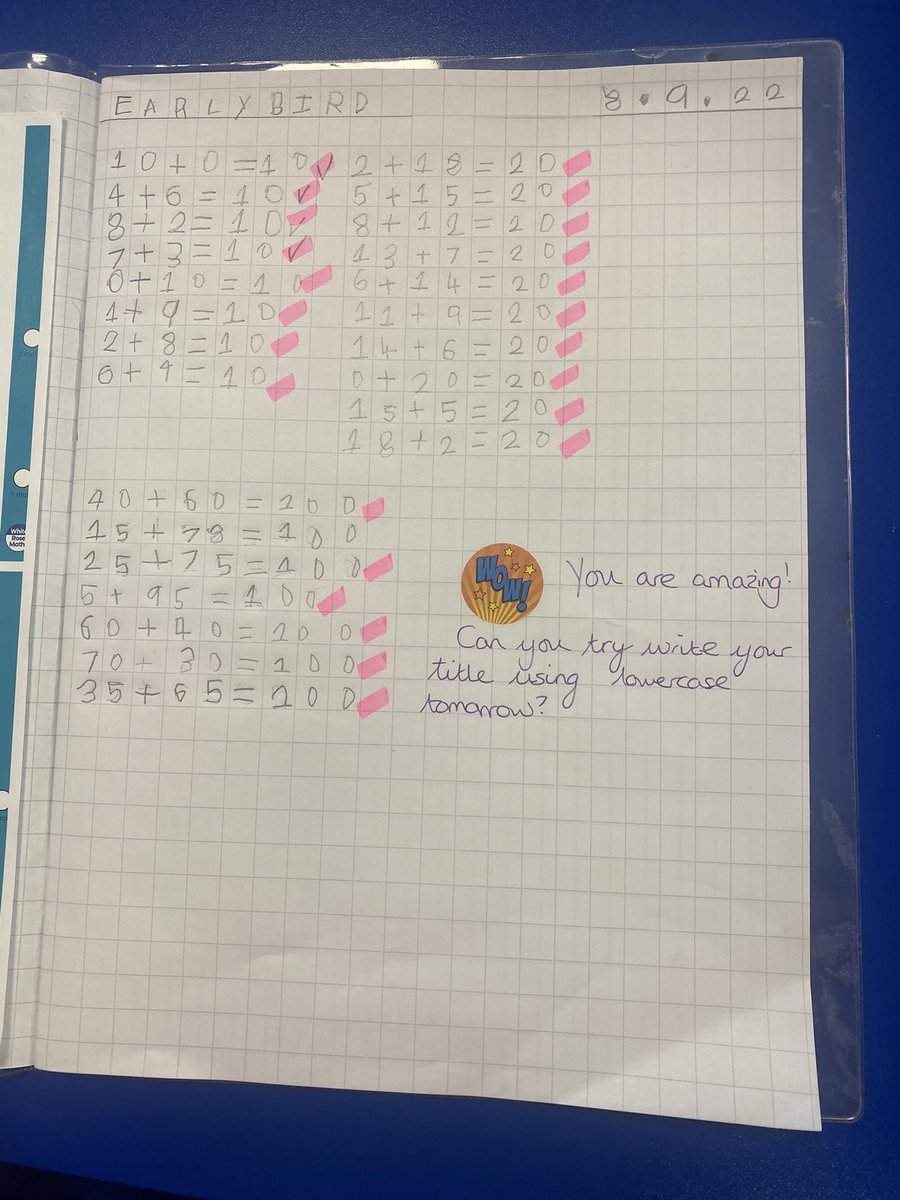 EARLYBIRD
8.9.22
10+0=10
4+6=10
8+2=10
7+3=10
0+10=10
1+9=10
2+8=10
6+4=10
2+18=20
5+15=20
8+12=20
13+7=20
6+14=20
11+9=20
14+6=20
0+20=20
15+5=20
18+2=20
40+60=100
15+78=100
25+75=100
5+95=100
60+40=100
70+30=100
35+65=100
WOW!
You are amazing!
Can you try write your
title using lowercase
tomorrow?